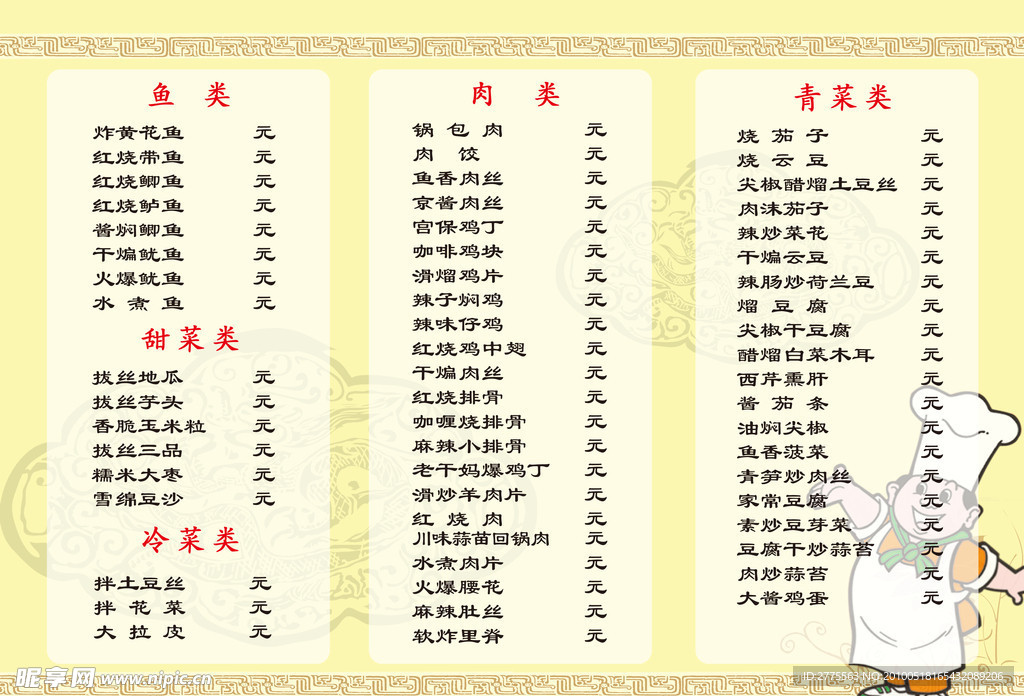 鱼 类
炸黄花鱼 元
红烧带鱼 元
红烧鲫鱼 元
红烧鲈鱼 元
酱焖鲫鱼 元
干煸鱿鱼 元
火爆鱿鱼 元
水煮鱼 元
甜菜类
拔丝地瓜 元
拔丝芋头 元
香脆玉米粒 元
拔丝三品 元
糯米大枣 元
雪绵豆沙 元
冷菜类
拌土豆丝 元
拌花菜 元
大拉皮 元
肉 类
锅包肉 元
肉饺 元
鱼香肉丝 元
京酱肉丝 元
宫保鸡丁 元
咖啡鸡块 元
滑熘鸡片 元
辣子焖鸡 元
辣味仔鸡 元
红烧鸡中翅 元
干煸肉丝 元
红烧排骨 元
咖喱烧排骨 元
麻辣小排骨 元
老干妈爆鸡丁 元
滑炒羊肉片 元
红烧肉 元
川味蒜苗回锅肉 元
水煮肉片 元
火爆腰花 元
麻辣肚丝 元
软炸里脊 元
青菜类
烧茄子 元
烧云豆 元
尖椒醋熘土豆丝 元
肉沫茄子 元
辣炒菜花 元
干煸云豆 元
辣肠炒荷兰豆 元
熘豆腐 元
尖椒干豆腐 元
醋熘白菜木耳 元
西芹熏肝 元
酱茄条 元
油焖尖椒 元
鱼香菠菜 元
青笋炒肉丝 元
家常豆腐 元
素炒豆芽菜 元
豆腐干炒蒜苔 元
肉炒蒜苔 元
大酱鸡蛋 元
昵享网 www.nipic.cn
ID:2775563 NO:20100518165432089206